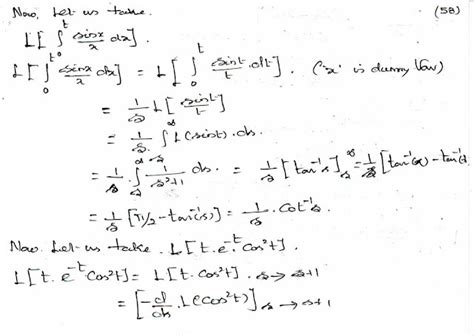 Now, Let us take. (58)
L[ ∫₀ᵗ sinx/x dx ].
L[ ∫₀ᵗ sinx/x dx ] = L[ ∫₀ᵗ sint/t . dt ]. ('x' is dummy Var)
= 1/s L[ sint/t ]
= 1/s . ∫ₛ^∞ L(sint). ds.
= 1/s . ∫ₛ^∞ 1/(s²+1) ds. = 1/s [ tan⁻¹s ]ₛ^∞ = 1/s [tan⁻¹(∞) - tan⁻¹(s)
= 1/s [π/2 - tan⁻¹(s)] = 1/s . Cot⁻¹s.
Now. Let us take. L[ t. e⁻ᵗ Cos²t ].
L[ t. e⁻ᵗ Cos²t ] = L[ t. Cos²t ]. s → s+1
= [ -d/ds . L(Cos²t) ] s → s+1